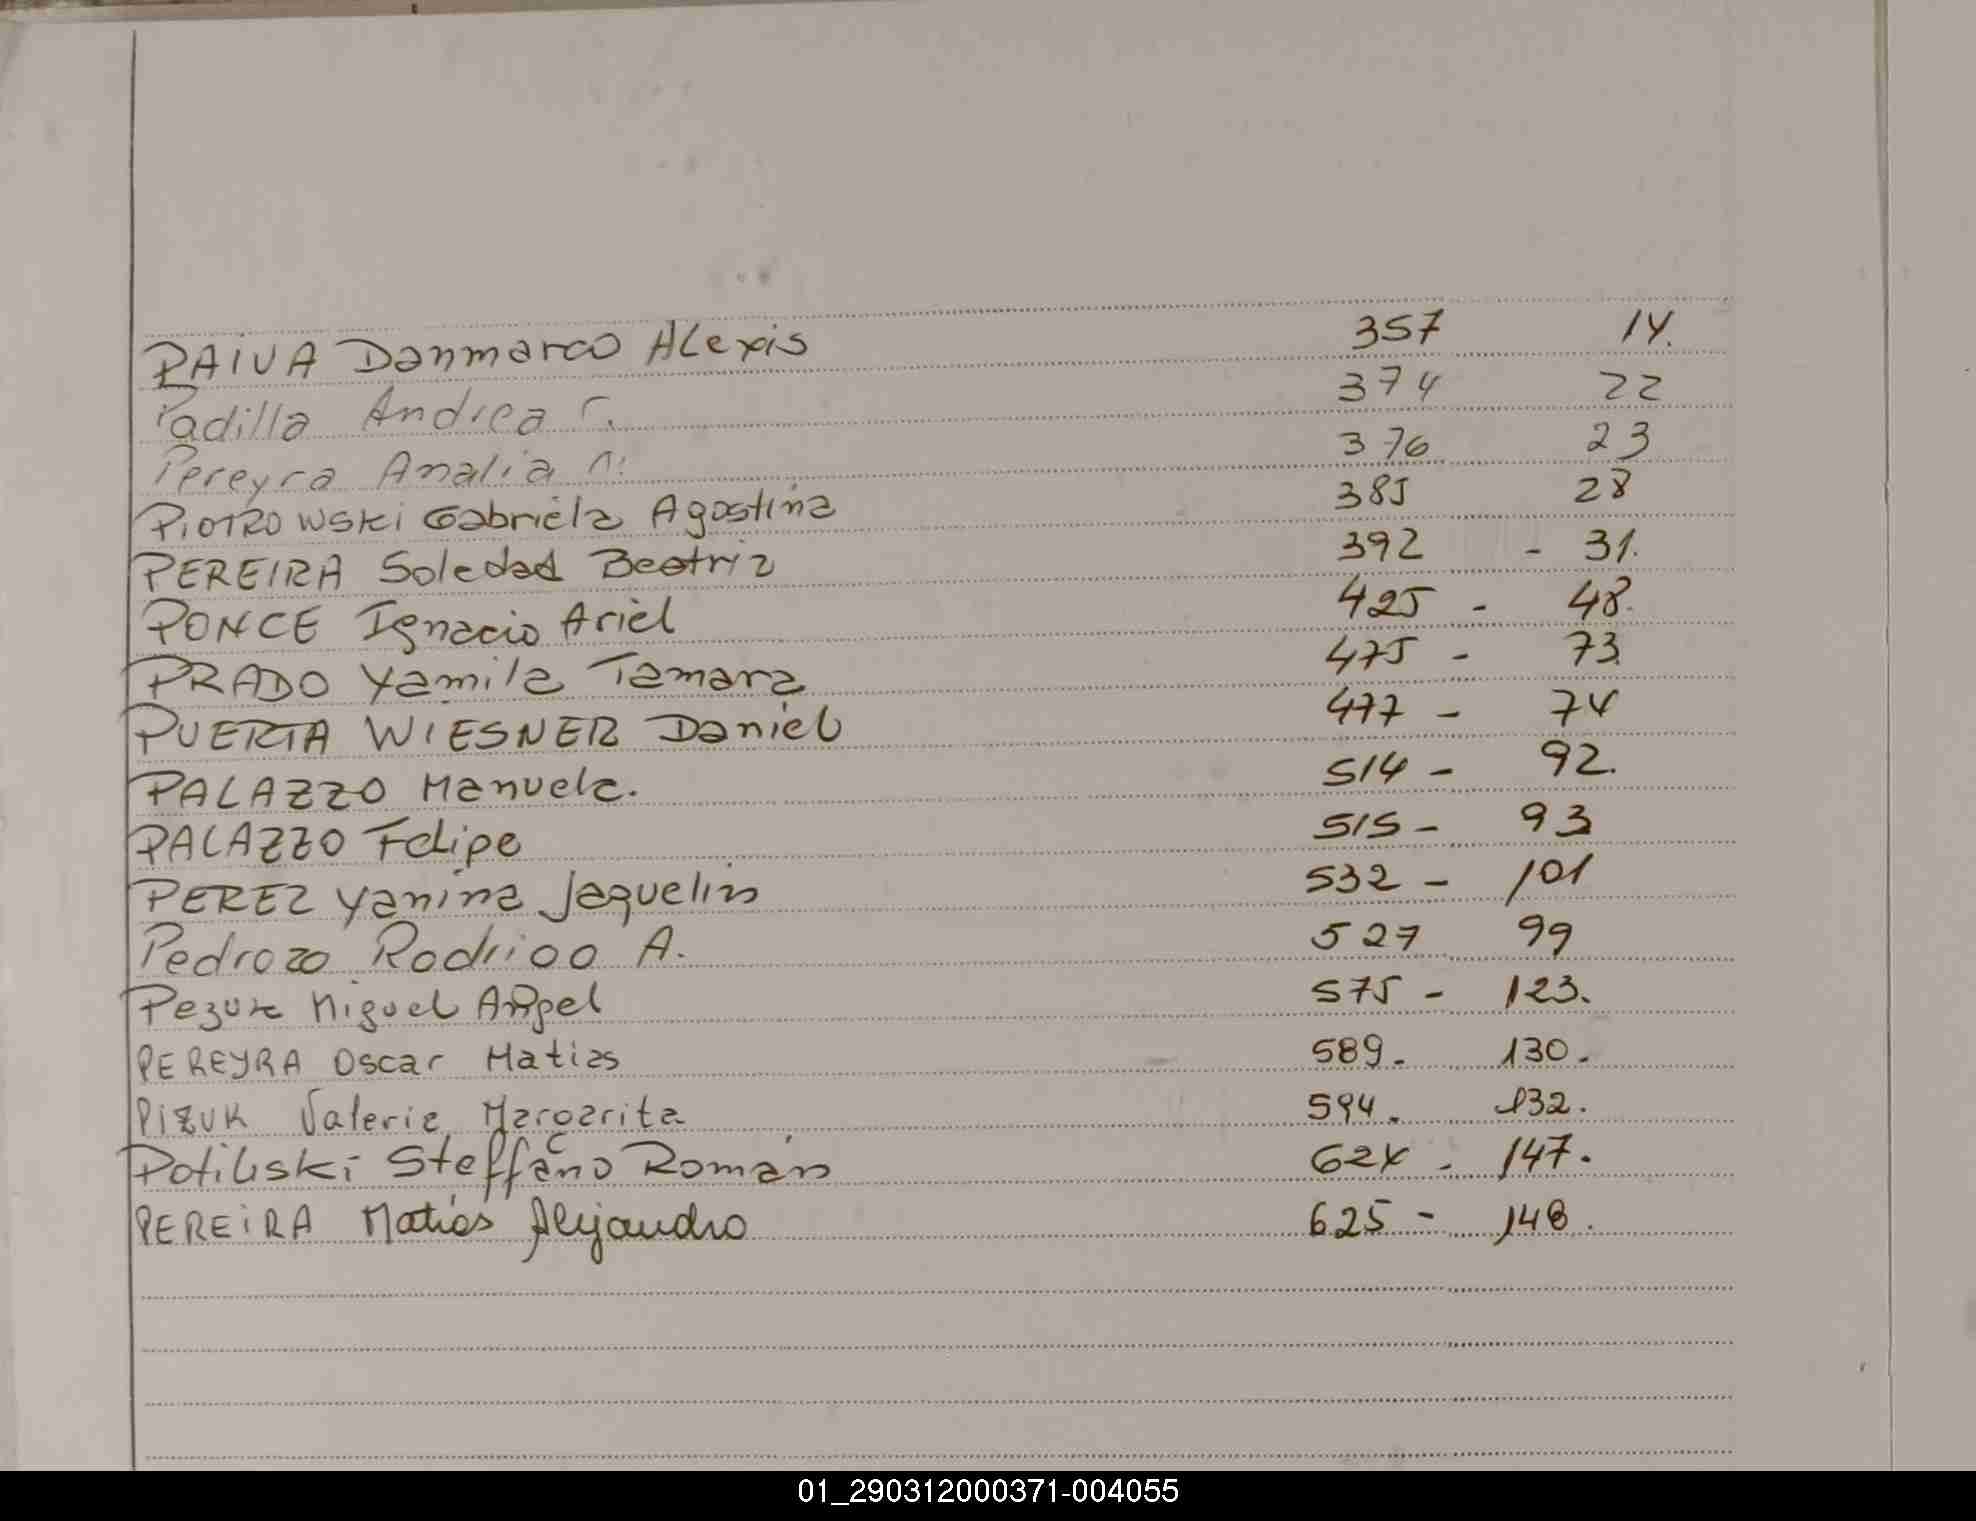 PAIVA Danmarco Alexis 357 14.
Padilla Andrea C. 374 22
Pereyra Analia 376 23
PIOTROWSKI Gabriela Agostina 385 28
PEREIRA Soledad Beatriz 392 - 31.
PONCE Ignacio Ariel 425 - 48.
PRADO Yamila Tamara 475 - 73.
PUERTA WIESNER Daniel 477 - 74
PALAZZO Manuela. 514 - 92.
PALAZZO Felipe 515 - 93
PEREZ Yanina Jaquelin 532 - 101
Pedrozo Rodrigo A. 527 99
Pezuk Miguel Angel 575 - 123.
PEREYRA Oscar Matias 589. 130.
PIZUK Valeria Margarita 594. 132.
Potiliski Steffano Román 624 - 147.
PEREIRA Matías Alejandro 625 - 148.
01_290312000371-004055